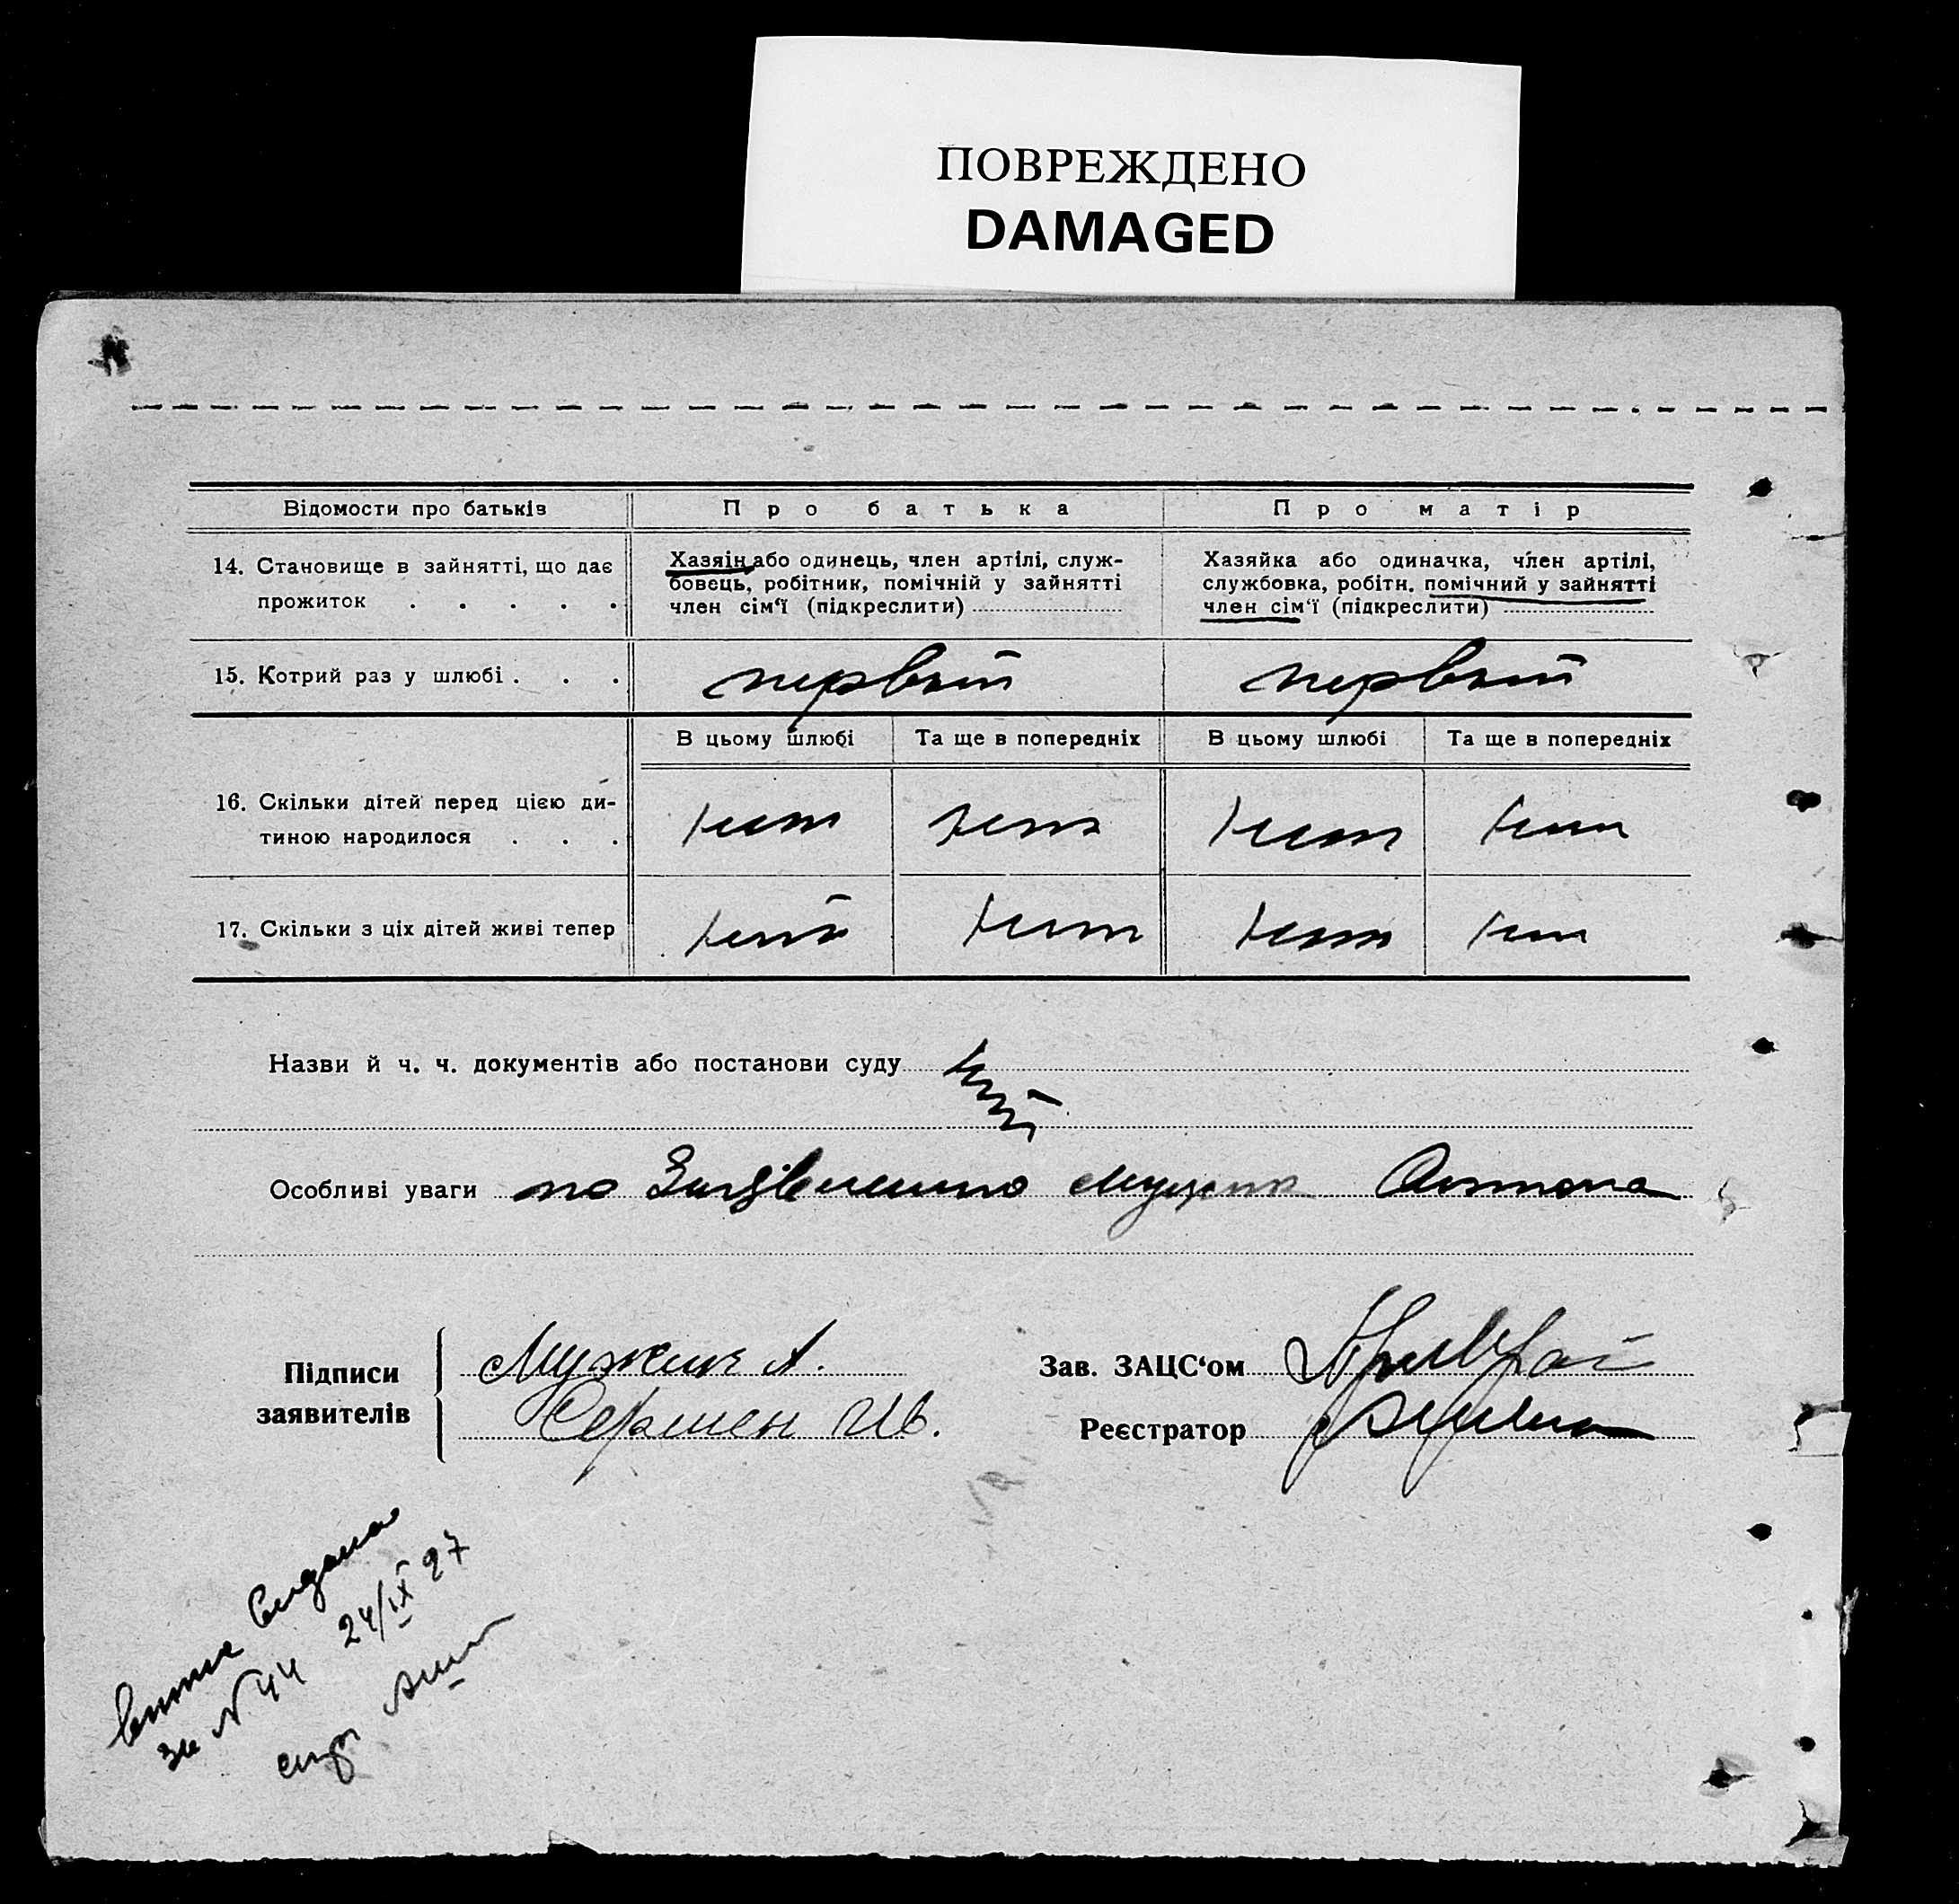 ПОВРЕЖДЕНО
DAMAGED
Відомости про батьків
Про батька
Про матір
14. Становище в зайнятті, що дає
прожиток . . . . .
Хазяін або одинець, член артілі, служ-
бовець, робітник, помічній у зайнятті
член сім‘ї (підкреслити)
Хазяйка або одиначка, член артілі,
службовка, робітн. помічний у зайнятті
член сім‘ї (підкреслити)
15. Котрий раз у шлюбі . . .
первый
первый
В цьому шлюбі
Та ще в попередніх
В цьому шлюбі
Та ще в попередніх
16. Скільки дітей перед цією ди-
тиною народилося . . .
нет нет нет нет
17. Скільки з ціх дітей живі тепер
нет нет нет нет
Назви й ч. ч. документів або постанови суду нет
Особливі уваги по Антона
Підписи
заявителів
Мужик А.
Ив.
Зав. ЗАЦС‘ом
Реєстратор
видана
за N 44 24/IX 27